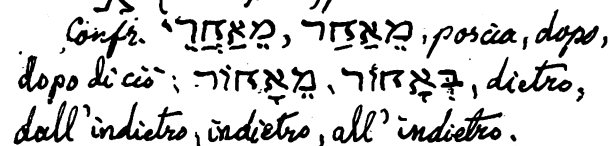 Confr. מֵאַחֲרֵי, מֵאַחַר, poscia, dopo,
dopo di ciò; מֵאָחוֹר, בְּאָחוֹר, dietro,
dall'indietro, indietro, all'indietro.